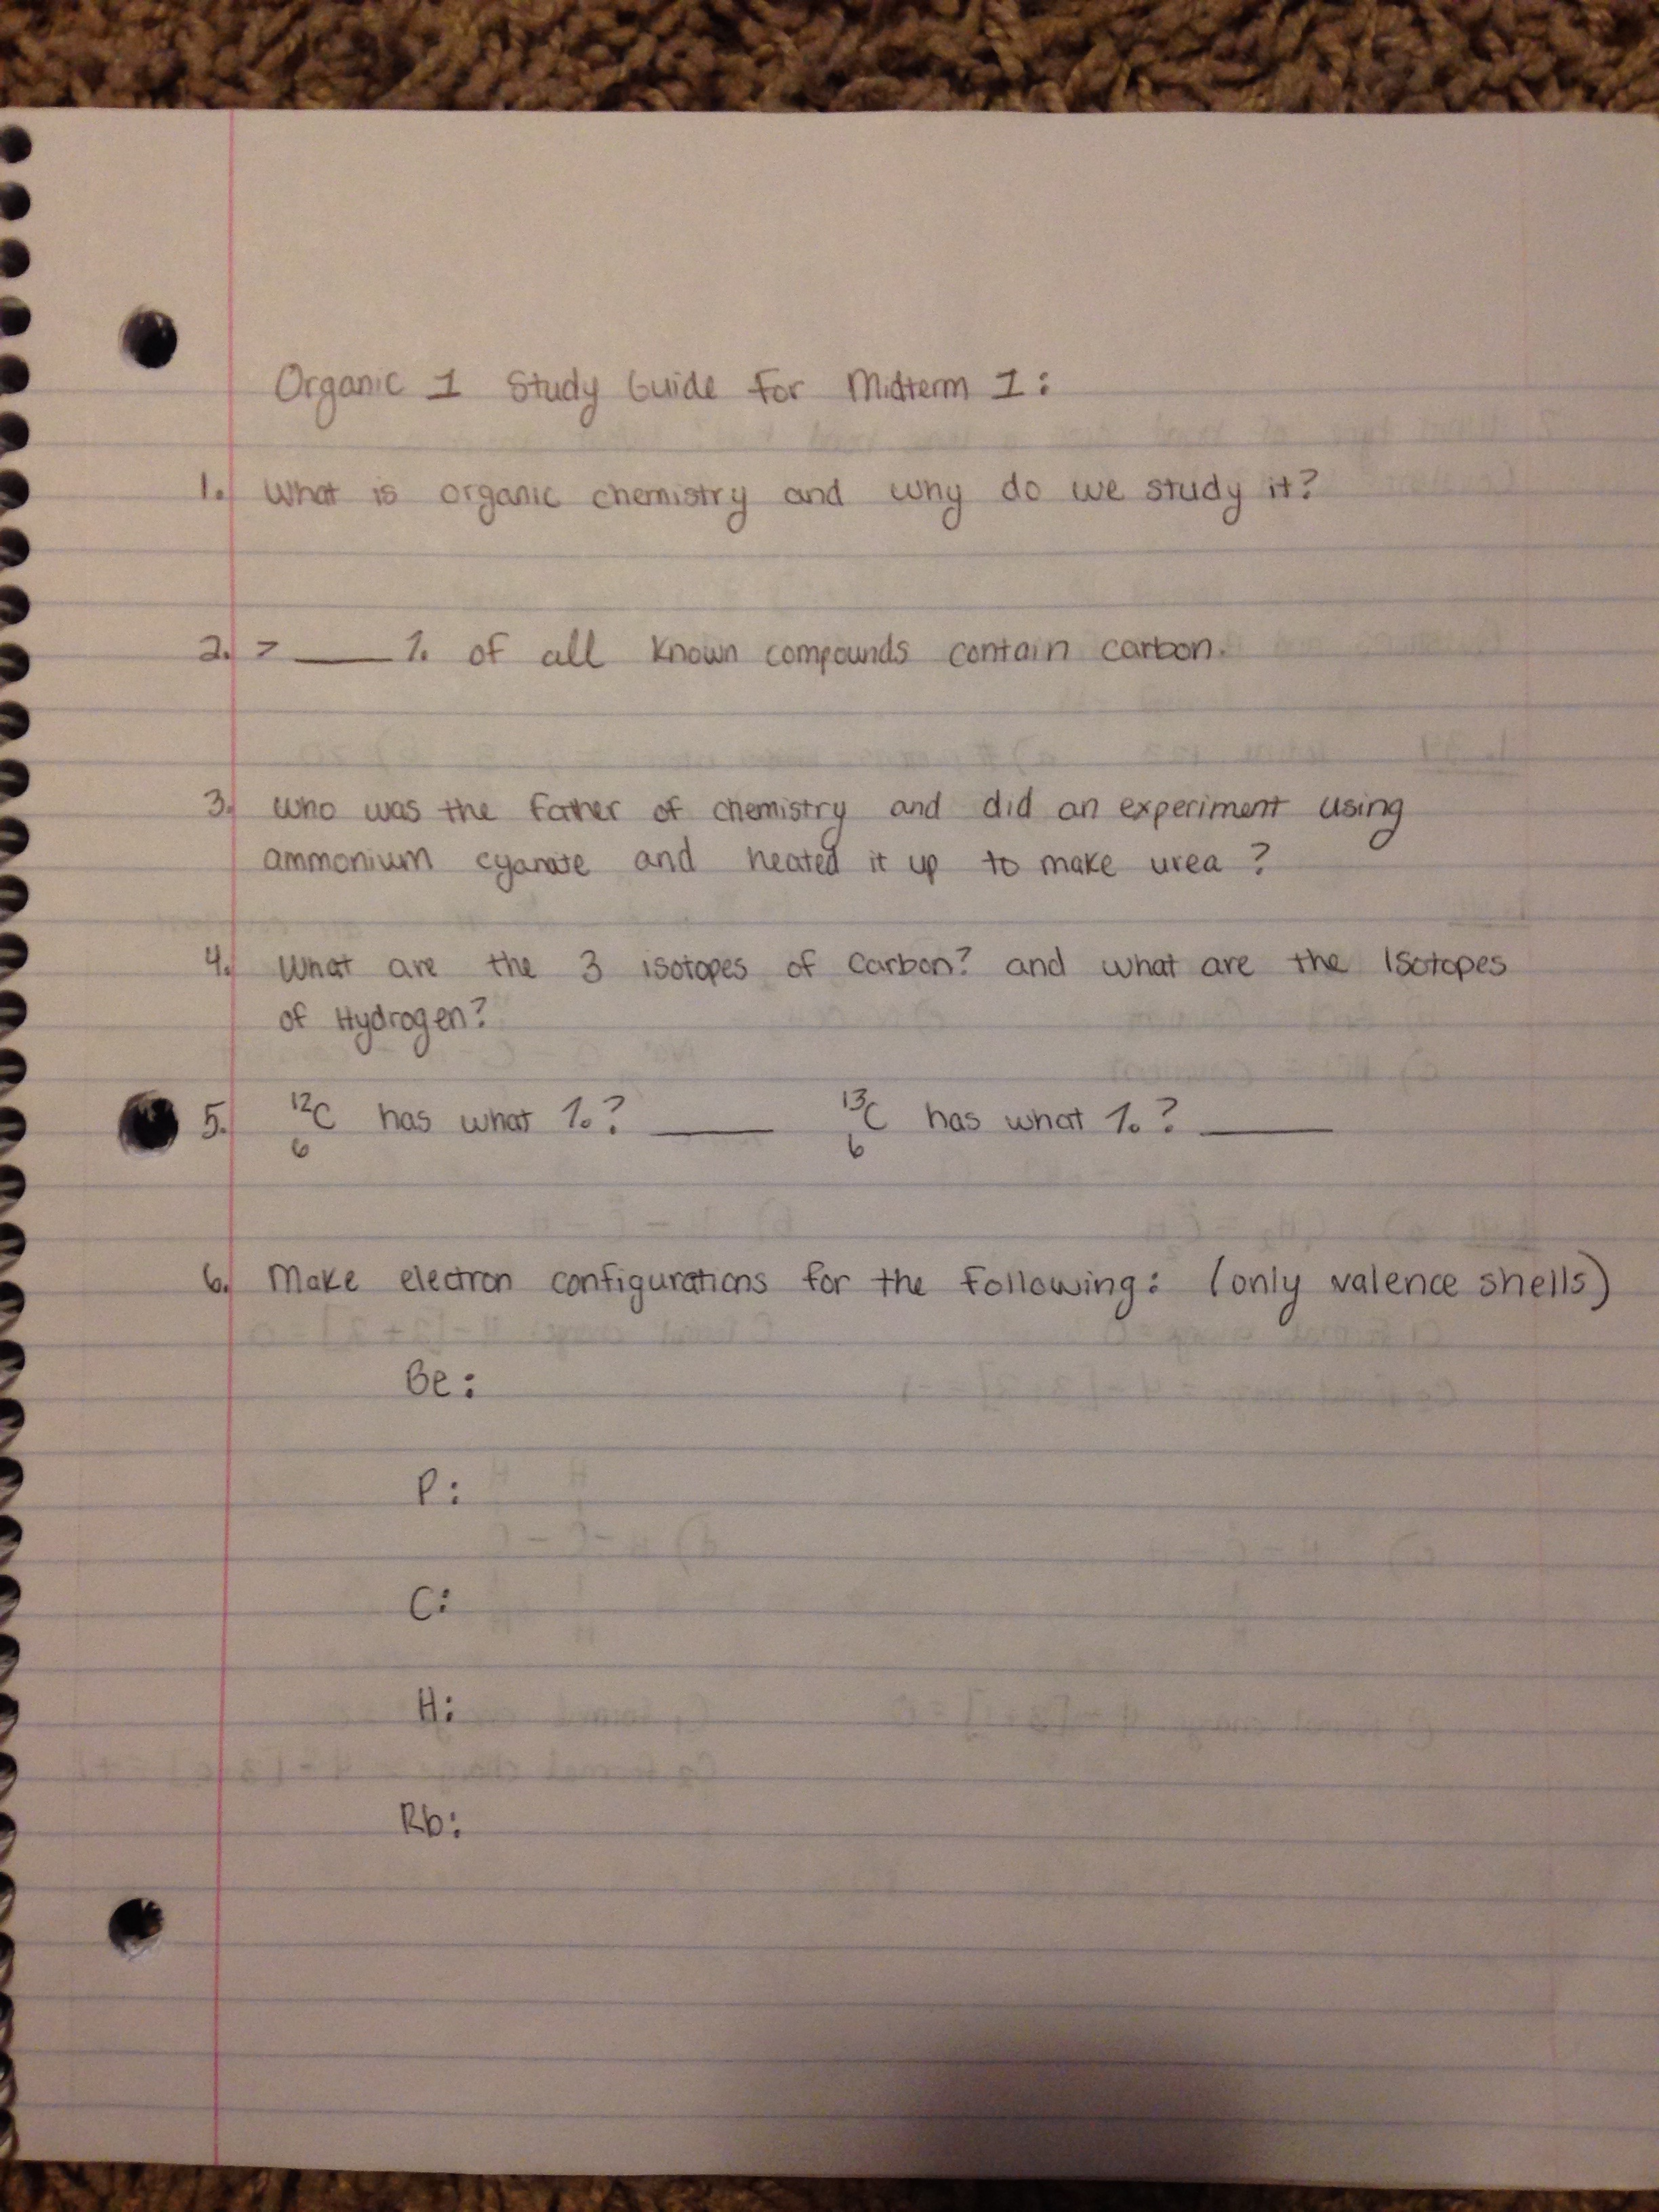 Organic 1 Study Guide For Midterm 1:
1. What is organic chemistry and why do we study it?
2. > ____ % of all known compounds contain carbon.
3. Who was the father of chemistry and did an experiment using
ammonium cyanate and heated it up to make urea?
4. What are the 3 isotopes of Carbon? and what are the Isotopes
of Hydrogen?
5. ¹²₆C has what %? ____ ¹³₆C has what %? ____
6. Make electron configurations for the following: (only valence shells)
Be:
P:
C:
H:
Rb: